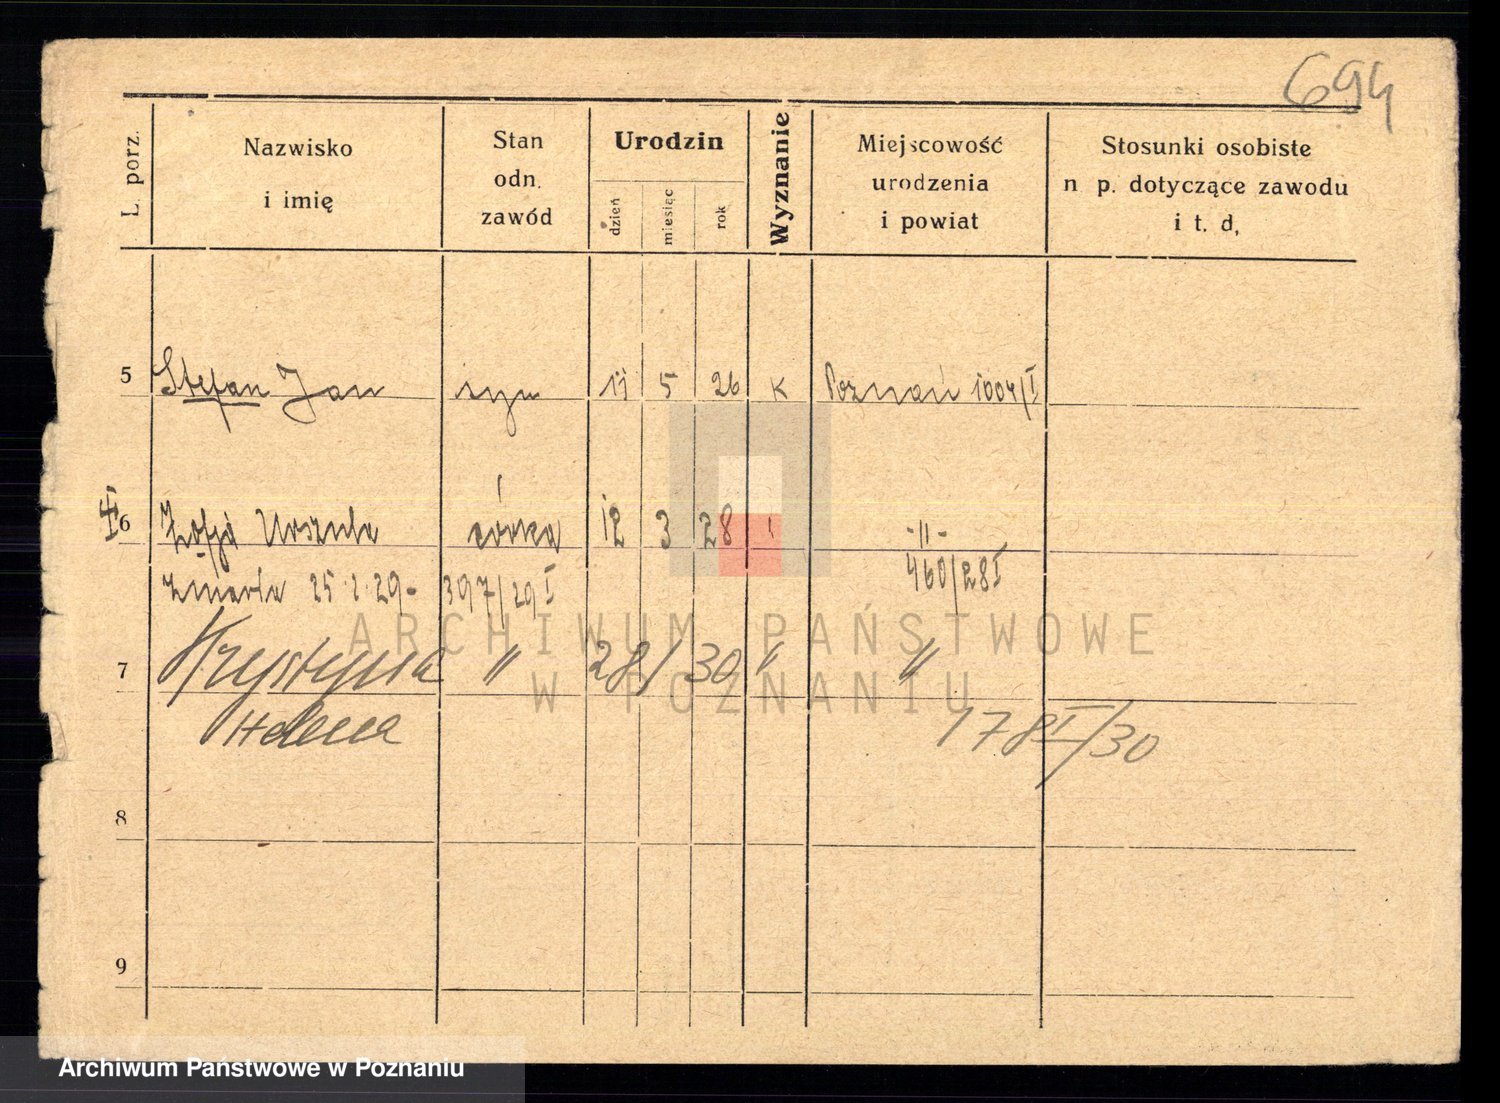 694
L. porz.
Nazwisko
i imię
Stan
odn.
zawód
Urodzin
dzień
miesiąc
rok
Wyznanie
Miejscowość
urodzenia
i powiat
Stosunki osobiste
n p. dotyczące zawodu
i t. d,
5 Stefan Jan syn 11 5 26 K Poznań 1004/I
6 Zofja Urszula córka 12 3 28 " -"-
460/28 I
zmarła 25.2.29- 397/29 I
7 Krystyna " 28 1 30 " "
Helena 178 I/30
8
9
ARCHIWUM PAŃSTWOWE
W POZNANIU
Archiwum Państwowe w Poznaniu